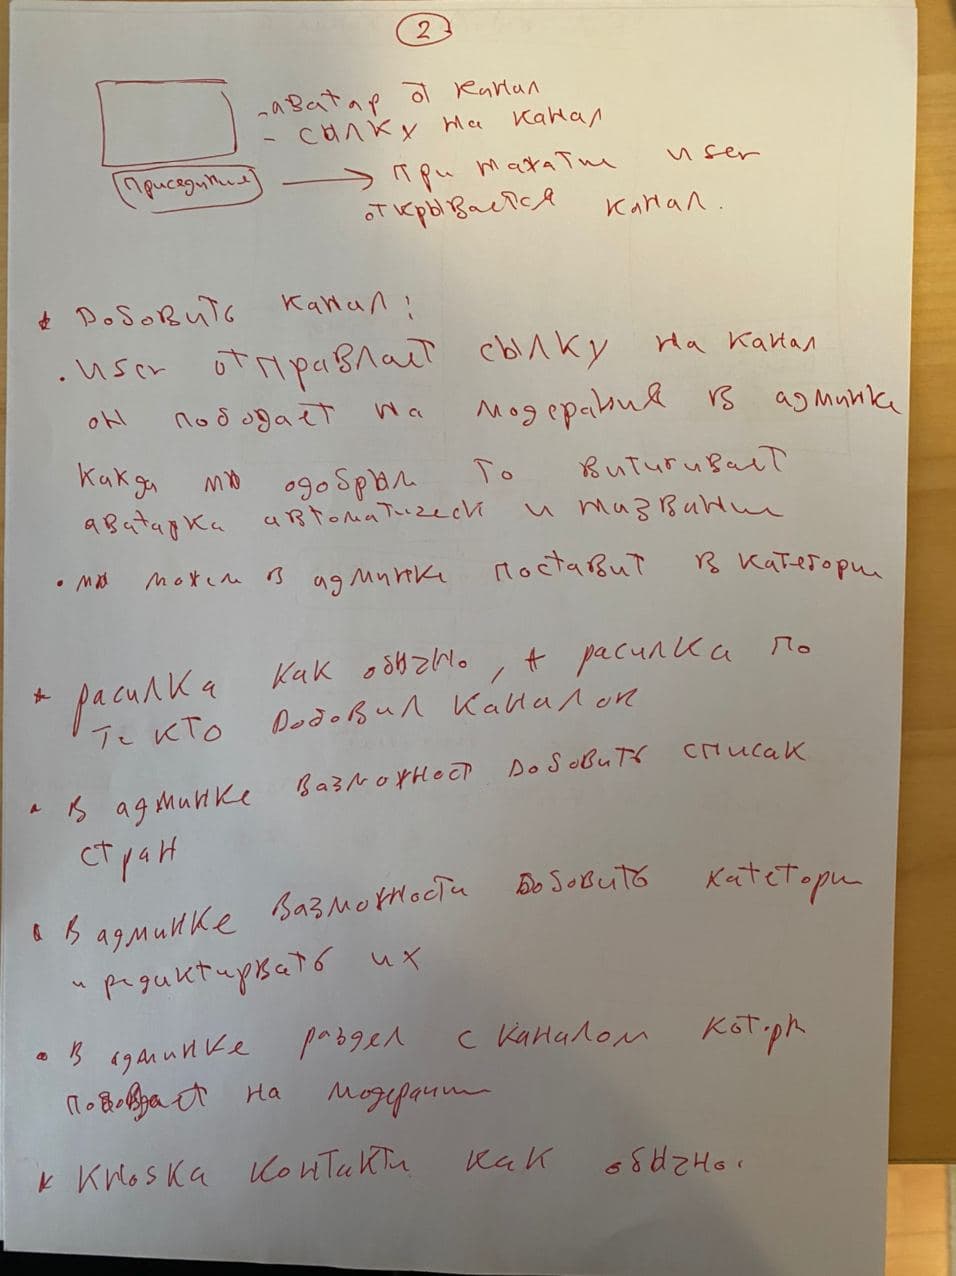 2
- аватар от канал
- сылку на канал
Приседиться → При нажати user
открывается канал.
* Добовить канал:
. user отправлает сылку на канал
он пободает на модерация в админке
Какда мы одобрыли то витигивает
аватарка автоматически и названи
• мы можем в админке поставит в категори
* расилка как обычно, + расилка по
те кто добовил канал ок
• В админке вазможност добовить списак
стран
• В админке вазможности добовить категори
и редиктирвать их
• В админке раздел с каналом котори
пободает на модерации
* Кноска контакти как обычно.